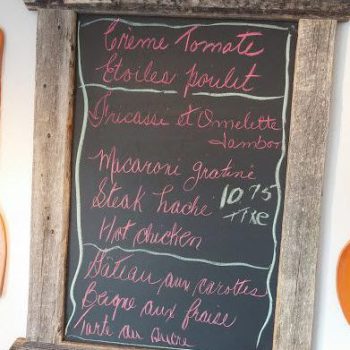 Crème Tomate
Etoiles poulet
Fricassi et Omelette
Jambon
Macaroni gratiné
Steak hache 10.75
Hot chicken
Gâteau aux carottes
Beigne aux fraise
Tarte au Sucre